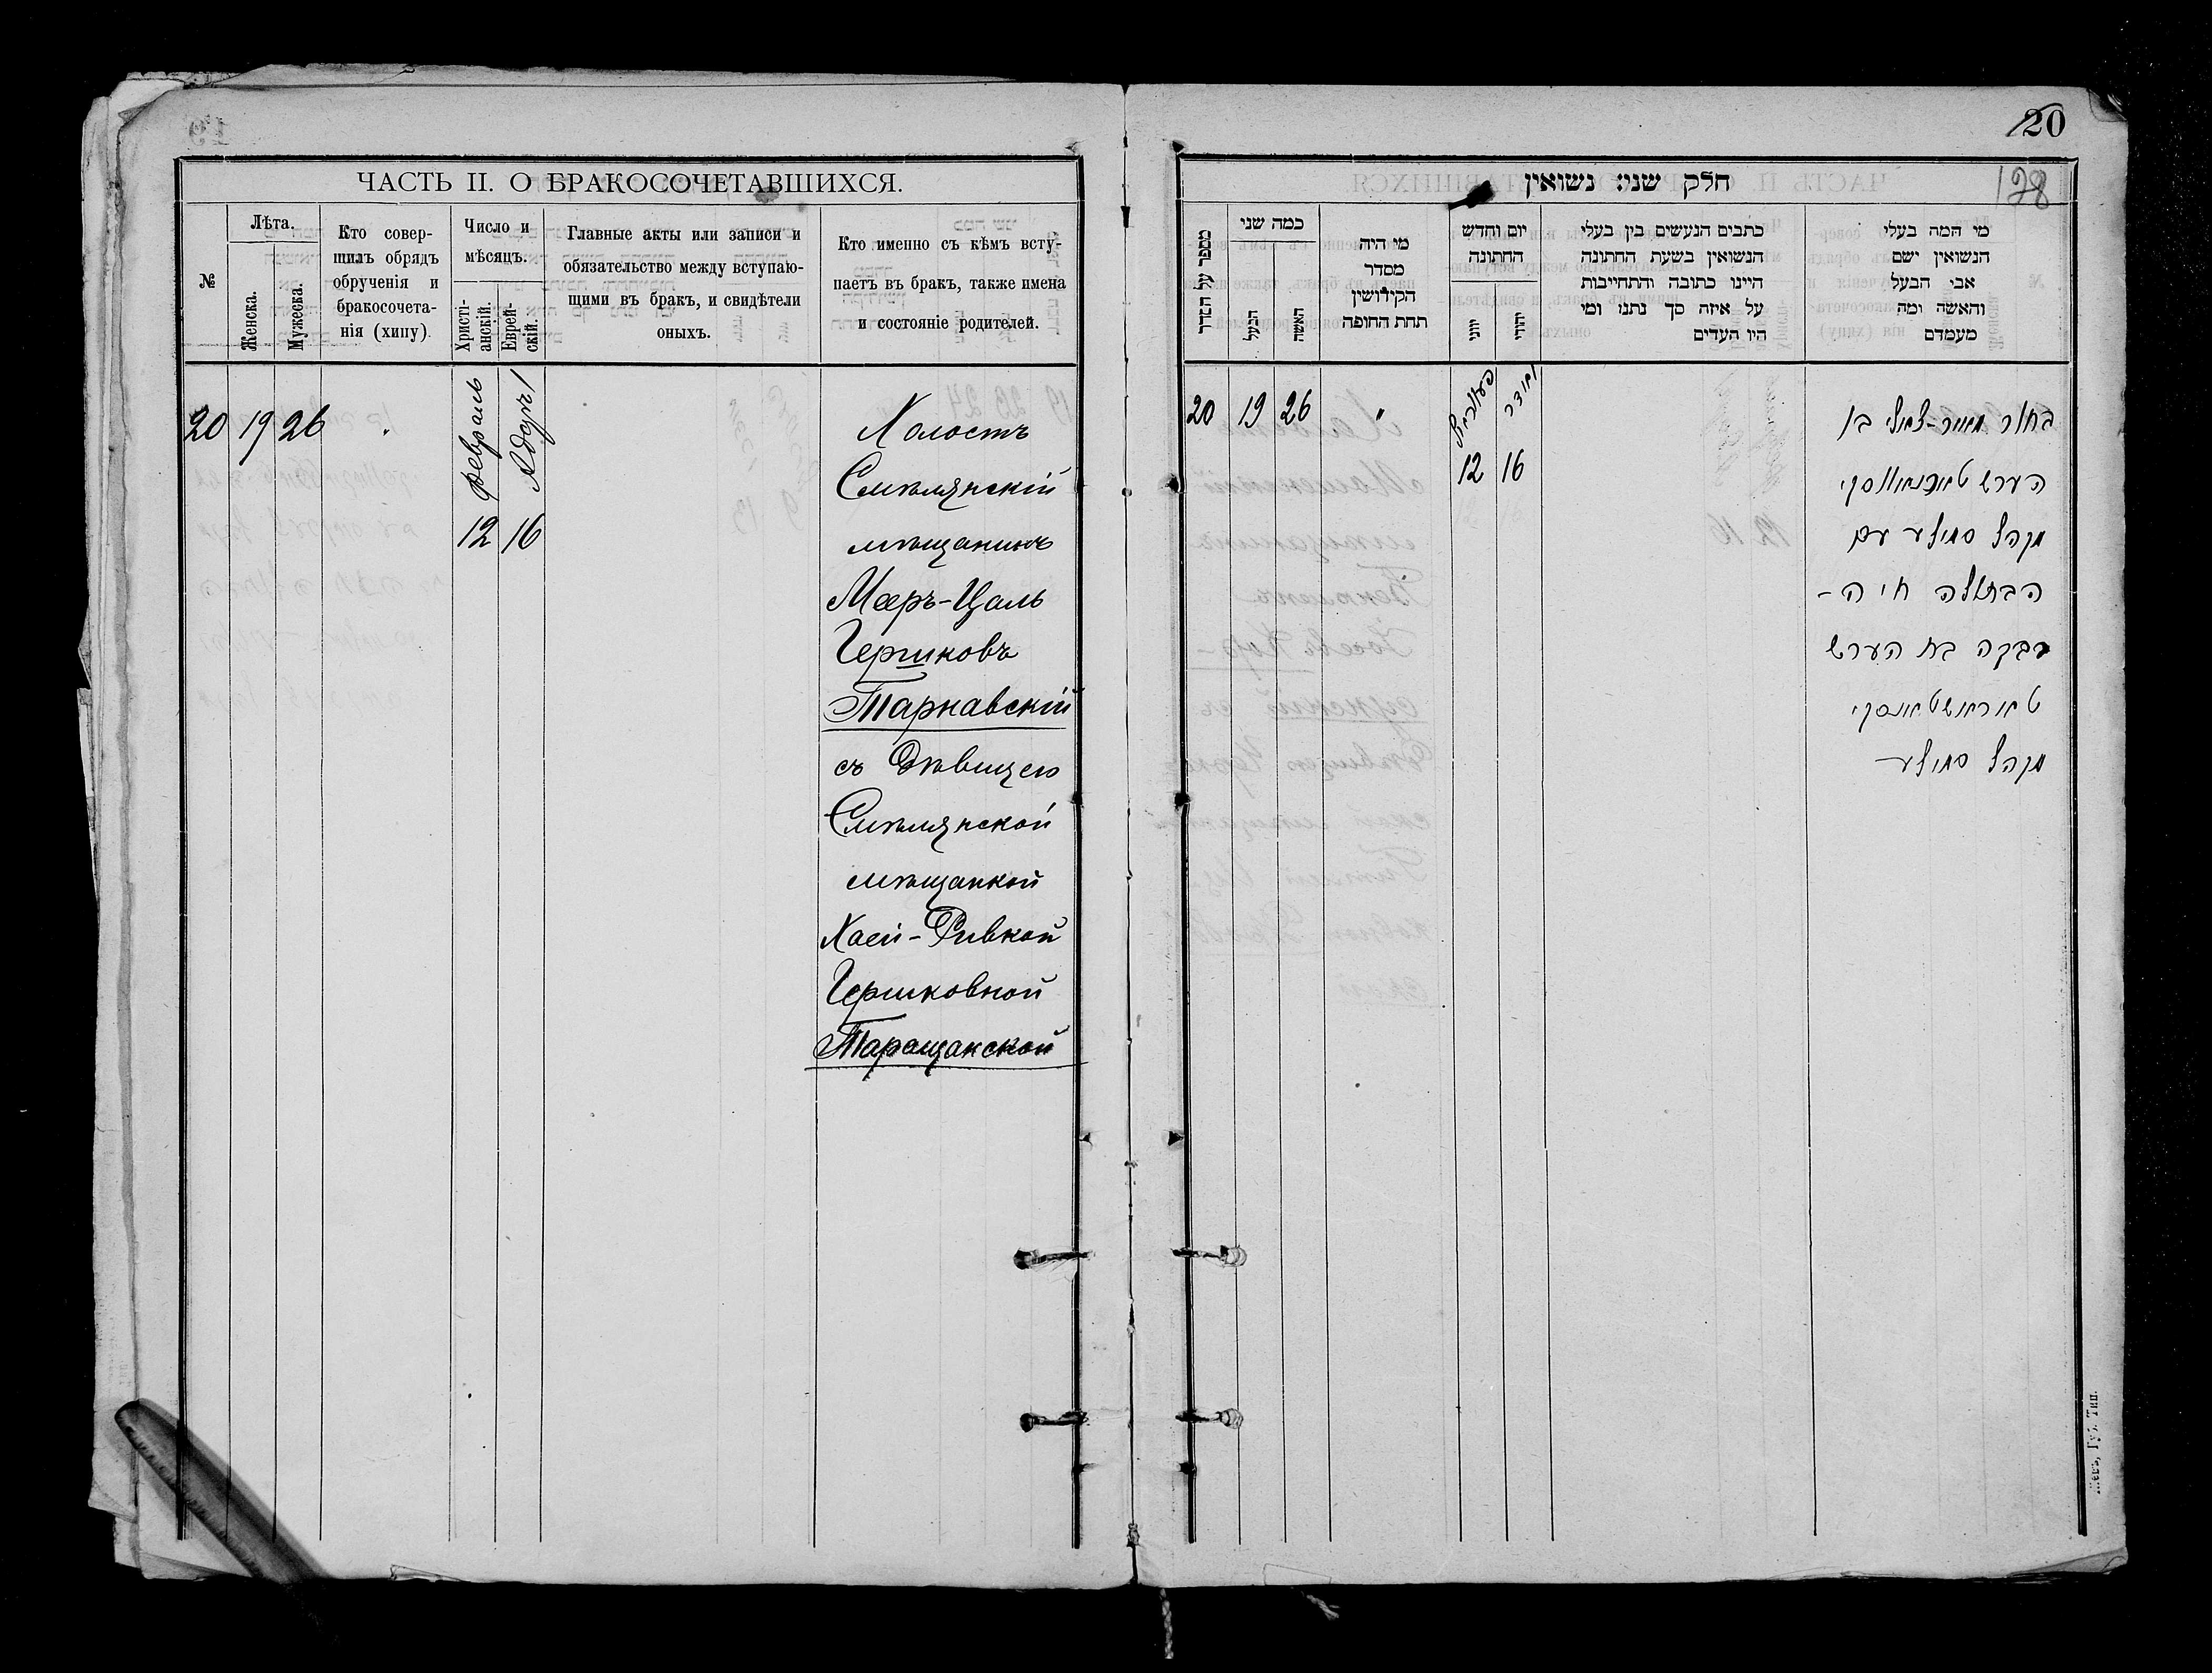 ЧАСТЬ II. О БРАКОСОЧЕТАВШИХСЯ.
№
Лѣта.
Женска.
Мужеска.
Кто совер-
шилъ обрядъ
обрученія и
бракосочета-
нія (хипу)
Число и
мѣсяцъ.
Христі-
анскій.
Еврей-
скій.
Главные акты или записи и
обязательство между вступаю-
щими въ бракъ, и свидѣтели
оныхъ.
Кто именно съ кѣмъ всту-
паетъ въ бракъ, также имена
и состояніе родителей.
20 19 26
Февраль
12
Адаръ 1
16
Холостъ
Смѣлянскій
мѣщанинъ
Мееръ-Цаль
Гершковъ
Тарнавскій
съ Дѣвицею
Смѣлянской
мѣщанкой
Хаей-Ривкой
Гершковной
Таращанской
20
128
חלק שני: נשואין
מספר על הסדר
כמה שני
הבעל
האשה
מי היה
מסדר
הקידושין
תחת החופה
יום וחדש
החתונה
יוני
יהודי
כתבים הנעשים בין בעלי
הנשואין בשעת החתונה
היינו כתובה והתחייבות
על איזה סך נתנו ומי
היו העדים
מי המה בעלי
הנשואין ישם
אבי הבעל
והאשה ומה
מעמדם
20 19 26 "
12 16
בחור מאיר-צאלי בן
הערש טארנאווסקי
מקהל סמילע עם
הבתולה חיה-
רבקה בת הערש
טאראשטאנסקי
מקהל סמילע
Губ. Тип.